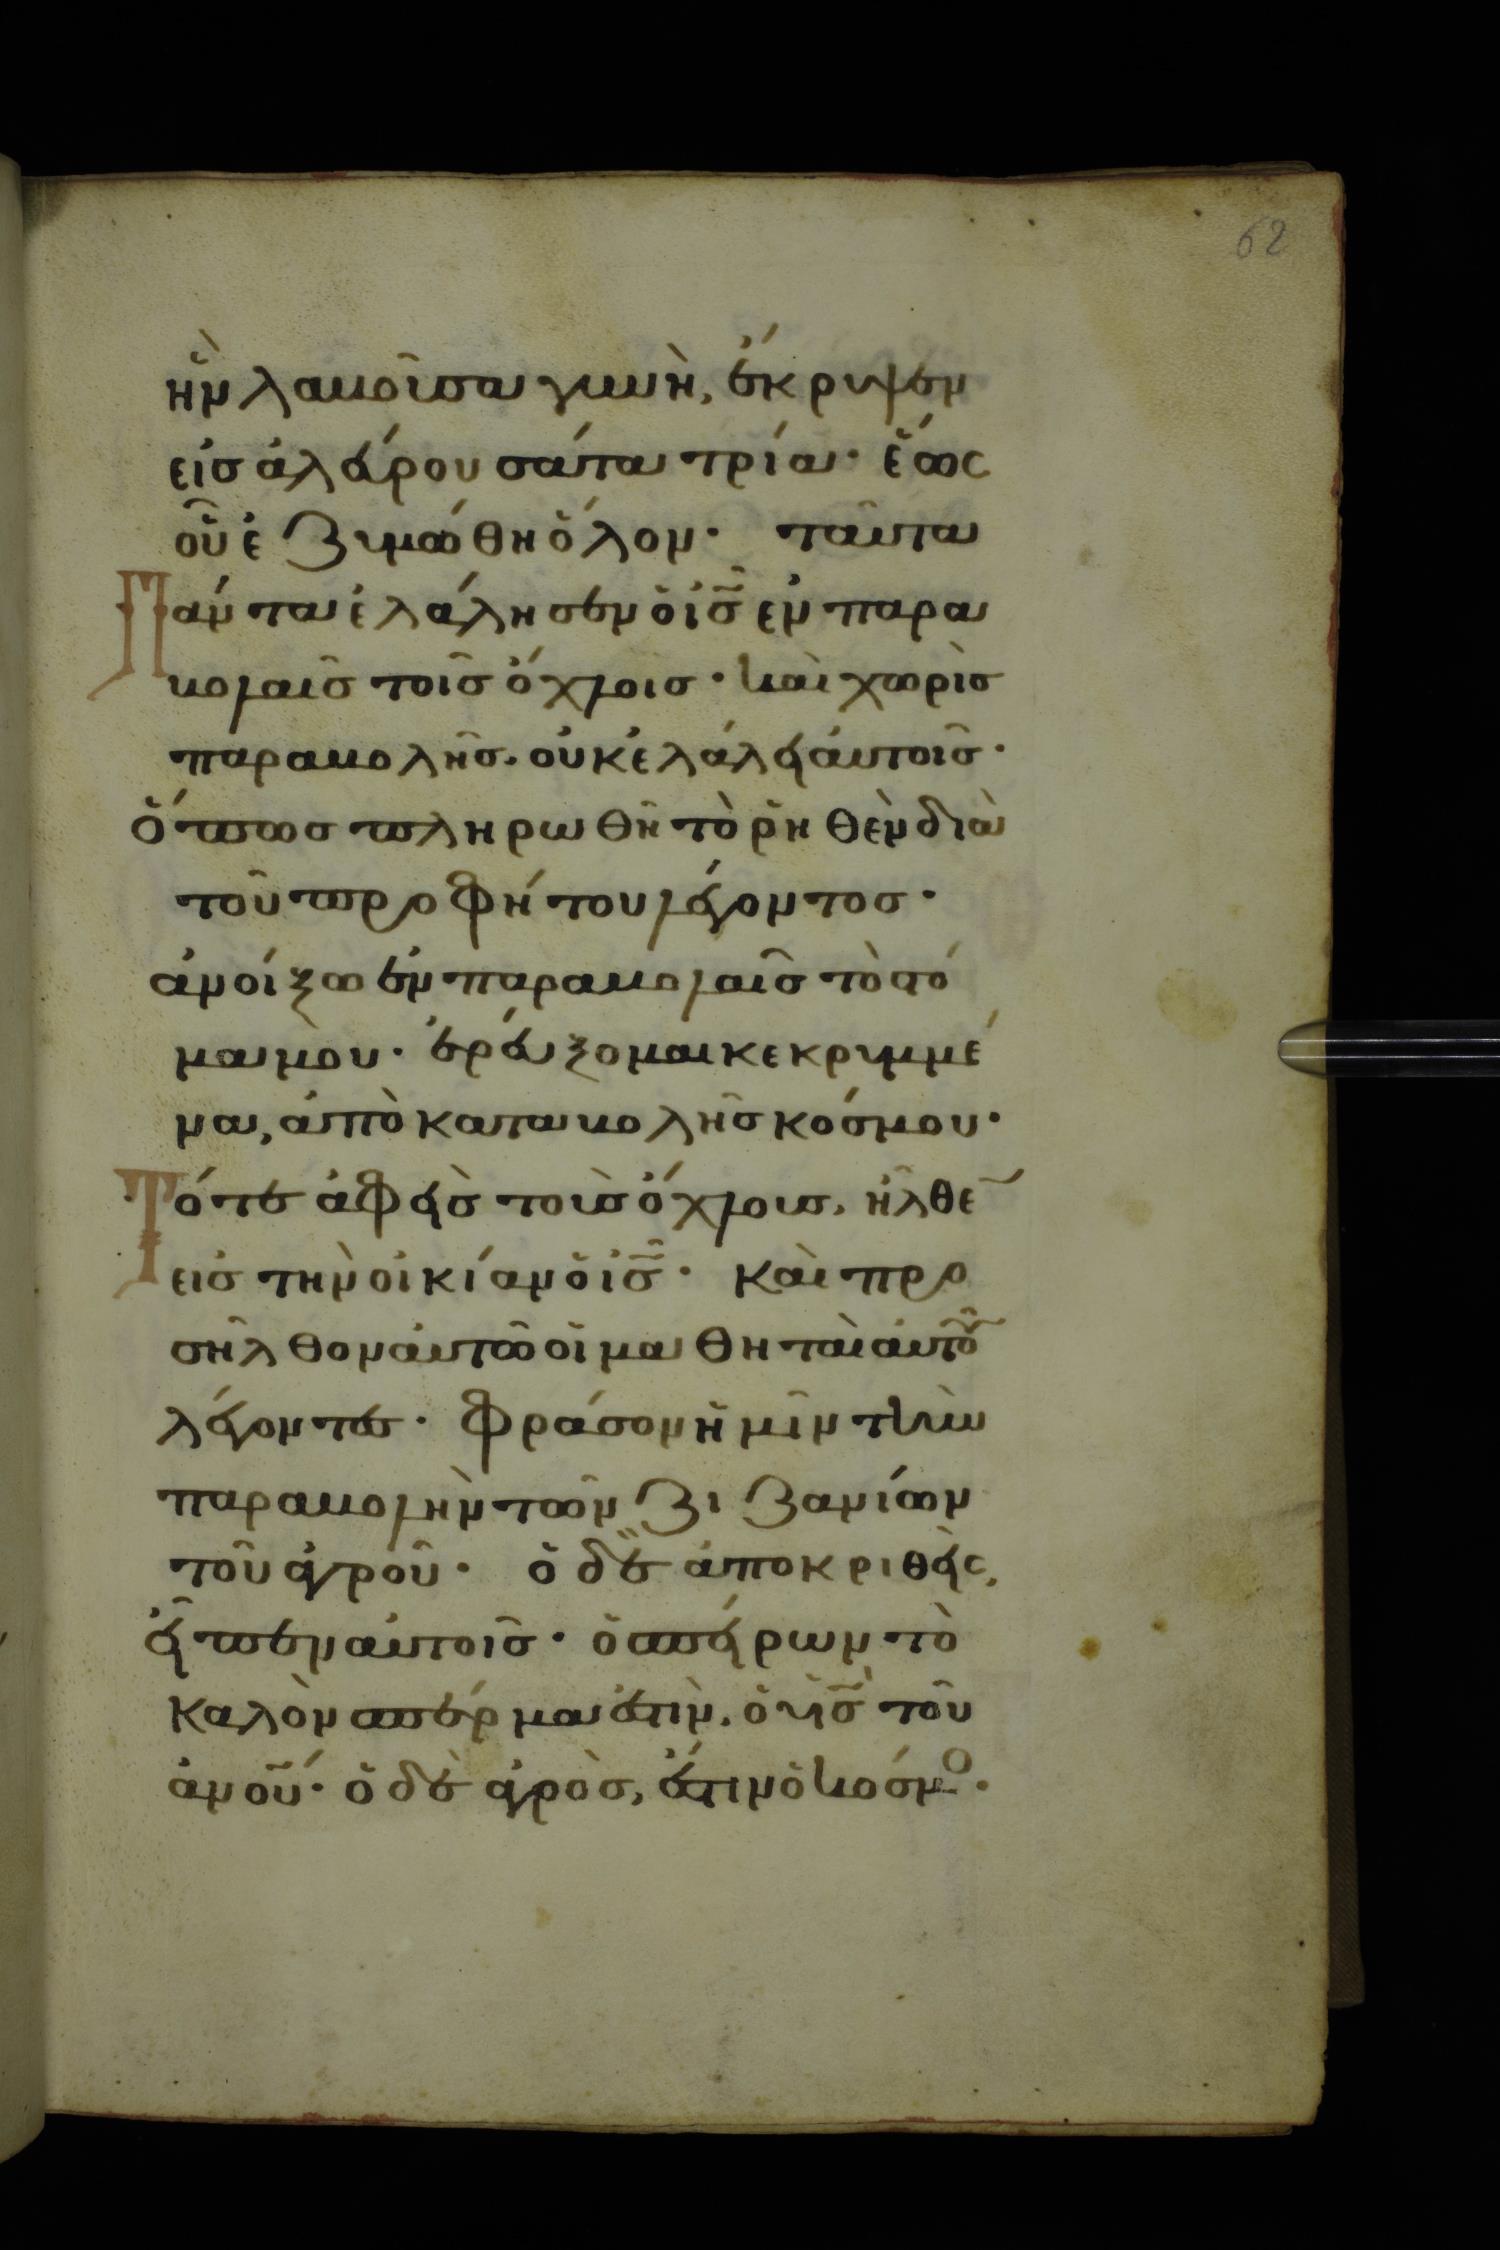 62
ἣν λαβοῦσα γυνὴ, ἔκρυψεν
εἰς ἀλεύρου σάτα τρία· ἕως
οὗ ἐζυμώθη ὅλον· ταῦτα
Πάντα ἐλάλησεν ὁ ἰ̅ς̅ ἐν παρα
βολαῖς τοῖς ὄχλοις· καὶ χωρὶς
παραβολῆς. οὐκ ἐλάλει αὐτοῖς·
ὅπως πληρωθῆ τὸ ῥηθὲν διὰ
τοῦ προφήτου λέγοντος·
ἀνοίξω ἐν παραβολαῖς τὸ στό
μα μου· ἐρεύξομαι κεκρυμμέ
να, ἀπὸ καταβολῆς κόσμου·
Τότε ἀφεὶς τοὺς ὄχλους, ἦλθε
εἰς τὴν οἰκίαν ὁ ἰ̅ς̅· καὶ προ
σῆλθον αὐτῶ οἱ μαθηταὶ αὐτοῦ
λέγοντες· φράσον ἡμῖν τὴν
παραβολὴν τῶν ζιζανίων
τοῦ ἀγροῦ· ὁ δὲ ἀποκριθεὶς,
εἶπεν αὐτοῖς· ὁ σπείρων τὸ
καλὸν σπέρμα ἐστὶν, ὁ υ̅ς̅ τοῦ
α̅ν̅ο̅υ̅· ὁ δὲ ἀγρὸς, ἐστιν ὁ κόσμο·